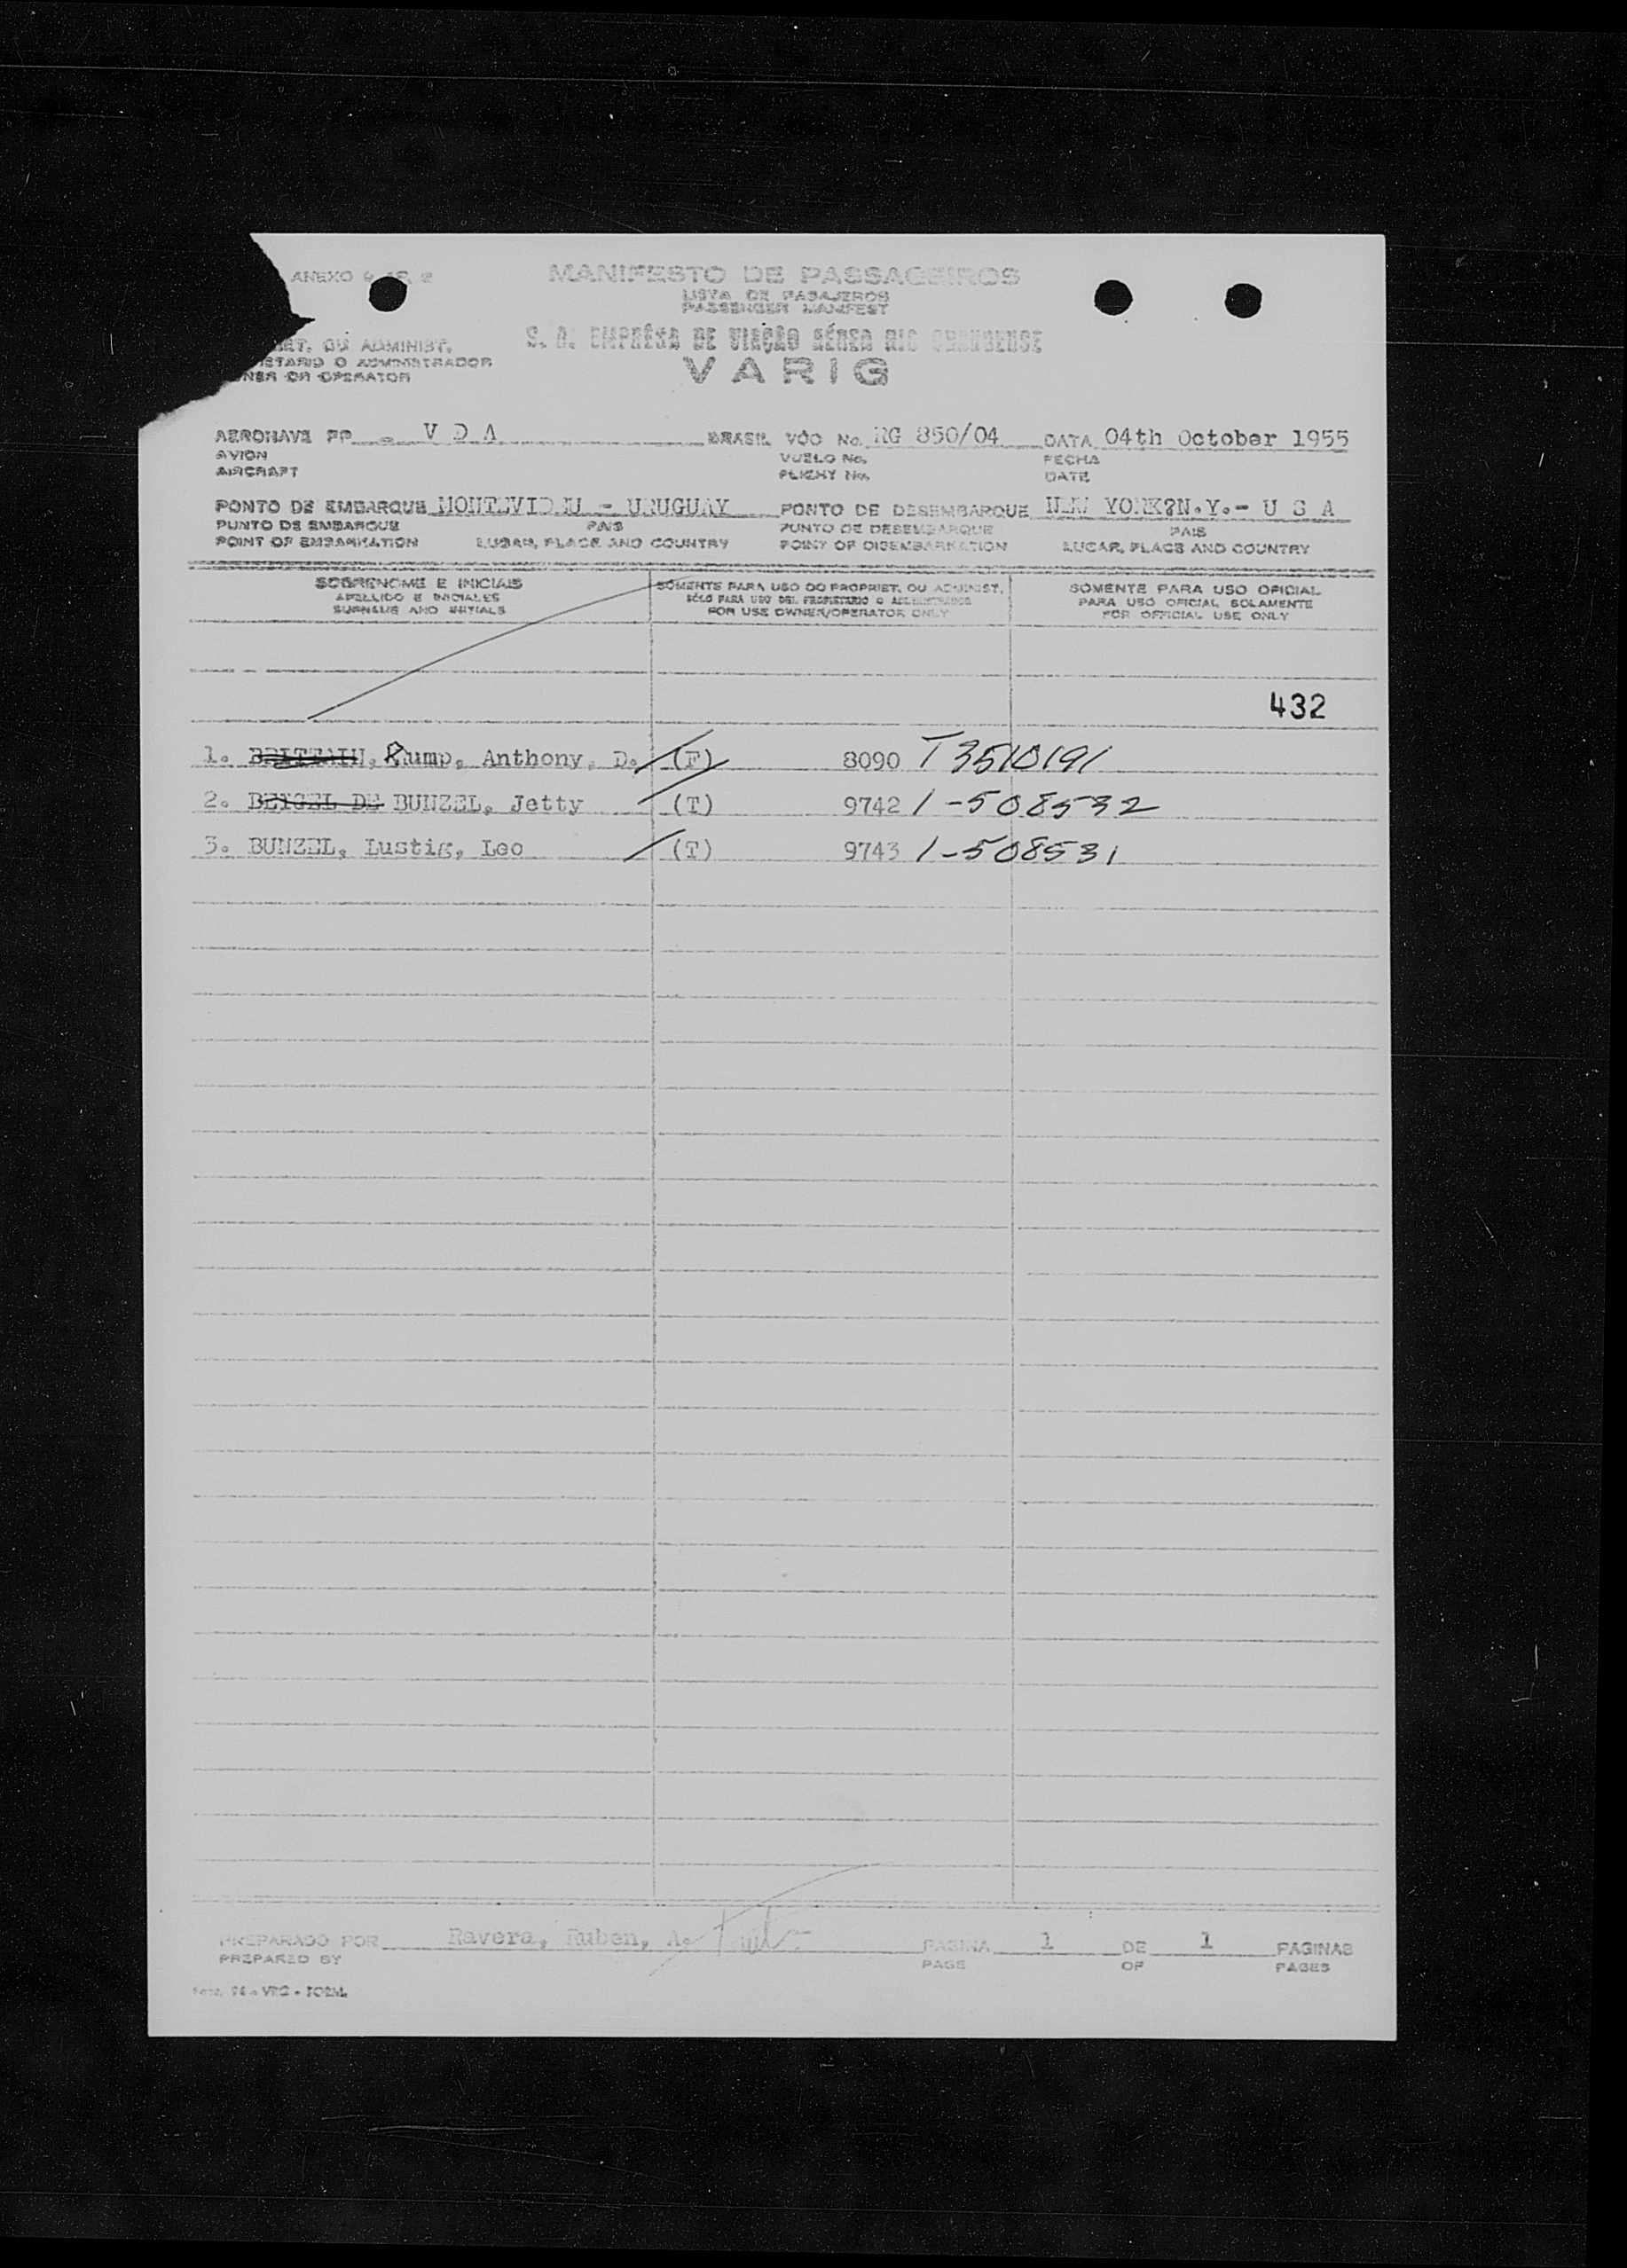 ANEXO 9
MANIFESTO DE PASSAGEIROS
LISTA DE PASAJEROS
PASSENGER MANIFEST
OU ADMINIST.
S. A. EMPRÊSA DE VIAÇÃO AÉREA RIO GRANDENSE
O ADMINISTRADOR
VARIG
OR OPERATOR
AERONAVE PP - V D A BRASIL VÔO No. RG 850/04 DATA 04th October 1955
AVION VUELO No. FECHA
AIRCRAFT FLIGHT No. DATE
PONTO DE EMBARQUE MONTEVIDEU - URUGUAY PONTO DE DESEMBARQUE NEW YORK?N.Y.- U S A
PUNTO DE EMBARQUE PAIS PUNTO DE DESEMBARQUE PAIS
POINT OF EMBARKATION LUGAR, PLACE AND COUNTRY POINT OF DISEMBARKATION LUGAR, PLACE AND COUNTRY
SOBRENOME E INICIAIS SOMENTE PARA USO DO PROPRIET. OU ADMINIST. SOMENTE PARA USO OFICIAL
APELLIDO E INICIALES SÓLO PARA USO DEL PROPIETARIO O ADMINISTRADOR PARA USO OFICIAL SOLAMENTE
SURNAME AND INITIALS FOR USE OWNER/OPERATOR ONLY FOR OFFICIAL USE ONLY
432
1. BRITTAIN, Rump, Anthony, D. (F) 8090 T3510191
2. BEIGEL DE BUNZEL, Jetty (T) 9742 1-508532
3. BUNZEL, Lustig, Leo (T) 9743 1-508531
PREPARADO POR Ravera, Ruben, A. PAGINA 1 DE 1 PAGINAS
PREPARED BY PAGE OF PAGES